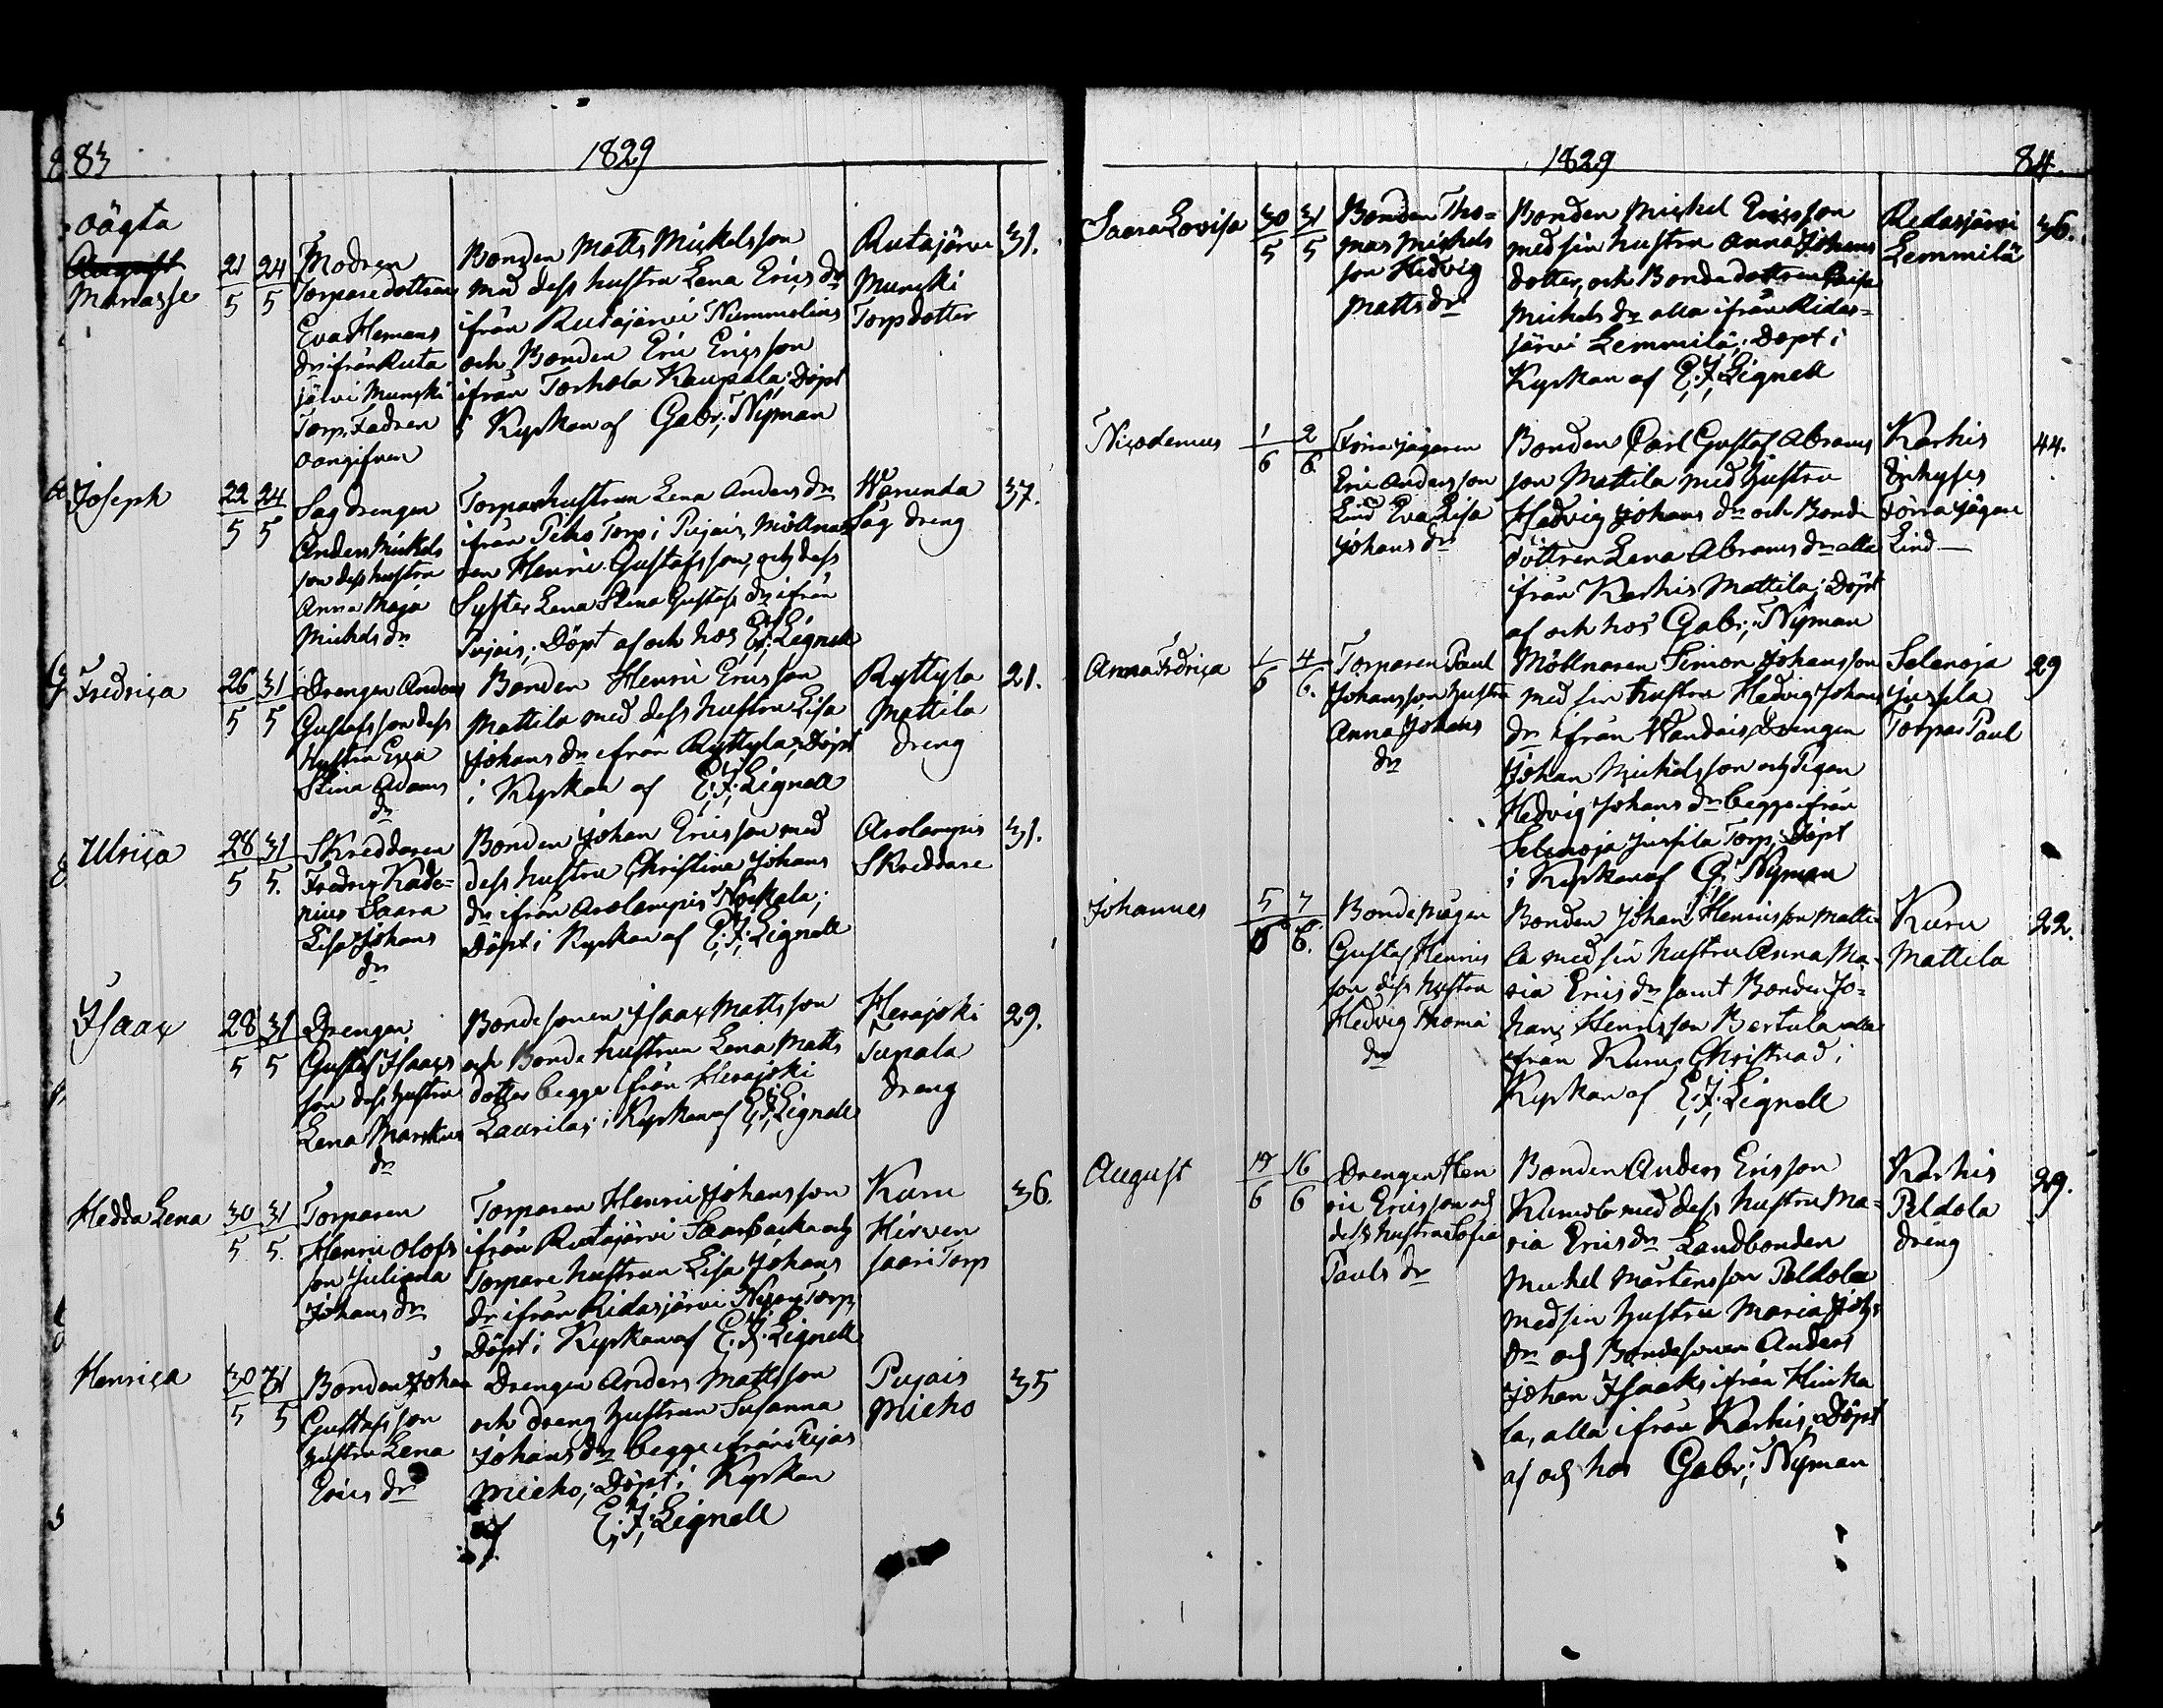 83
1829
oägta
August
Manasse
21/5 24/5
Modren
Torparedottren
Eva Hemans
dr ifrån Ruta
järvi Munski
Torp, Fadren
oangifven
Bonden Matts Mickelsson
med dess hustru Lena Erics dr
ifrån Rutajärvi Nummelins
och Bonden Eric Ericsson
ifrån Torhola Kaupala; Döpt
i Kyrkan af Gabr; Nyman
Rutajärvi
Munski
Torpdotter
31.
Joseph
22/5 24/5
Sag drengen
Anders Mickels
son dess hustru
Anna Maja
Michels dr
Torparhustrun Lena Anders dr
ifrån Torp i Pujais, Möllna
ren Henric Gustafsson, och dess
Syster Lena Stina Gustafs dr ifrån
Pujais; Döpt af och hos E; J; Lignell
Warunda
Såg dreng
37.
Fredrica
26/5 31/5
Drengen Anders
Gustafsson dess
hustru Eva
Stina Adams
dr
Bonden Henric Ericsson
Mattila med dess hustru Lisa
Johans dr ifrån Ryttyla; Döpt
i Kyrkan af E; J; Lignell
Ryttyla
Mattila
dreng
21.
Ulrica
28/5 31/5.
Skreddaren
Fredric Kade=
nius Saara
Lisa Johans
dr
Bonden Johan Ericsson med
dess hustru Christina Johans
dr ifrån Arolampis Nockala;
Döpt i Kyrkan af E; J; Lignell
Arolampis
Skreddare
31.
Isaac
28/5 31/5
Drengen
Gustaf Isaacs
son dess hustru
Lena Markus
dr
Bondesonen Isaac Mattsson
och Bonde hustrun Lena Matts
dotter begge ifrån Herajoki
Laurilas; i Kyrkan af E; J; Lignell
Herajoki
Tupala
dreng
29.
Hedda Lena
30/5 31/5.
Torparen
Henric Olofs
son Juliana
Johans dr
Torparen Henric Johansson
ifrån Rutajärvi Saarbacka och
Torpare hustrun Lisa Johans
dr ifrån Ridasjärvi Torp;
Döpt i Kyrkan af E; J; Lignell
Kuru
Hirven
saari Torp
36.
Henrica
30/5 31/5
Bonden Johan
Gustafsson
hustru Lena
Erics dr
Drengen Anders Mattsson
och dreng hustrun Susanna
Johans dr begge ifrån Pujais
Mieho; Döpt i Kyrkan
af E; J; Lignell
Pujais
Mieho
35
1829
84.
Saara Lovisa
30/5 31/5
Bonden Tho=
mas Michels
son Hedvig
Matts dr
Bonden Michel Ericsson
med sin hustru Anna Johans
dotter, och Bondedottren
Michels dr alla ifrån Ridas=
järvi Lemmilä; Döpt i
Kyrkan af E; J; Lignell
Ridasjärvi
Lemmilä
36.
Nicodemus
1/6 2/6
Förra jägaren
Eric Andersson
Lind Eva Lisa
Johans dr
Bonden Carl Gustaf Abrams
son Mattila med hustru
Hedvig Johans dr och Bonde
döttren Lena Abrams dr alla
ifrån Karhis Mattila; Döpt
af och hos Gabr; Nyman
Karhis
Inhyses
förra jägare
Lind
44.
Anna Fredrica
1/6 4/6.
Torparen Paul
Johansson hustru
Anna Johans
dr
Möllnaren Simon Johansson
med sin hustru Hedvig Johans
dr ifrån Wandais, Drengen
Johan Mickelsson och Pigan
Hedvig Johans dr begge ifrån
Selenoja Jussila Torp; Döpt
i Kyrkan af G; Nyman
Selenoja
Jussila
Torpar Paul
29
Johannes
5/6 7/6.
Bondemågen
Gustaf Henrics
son dess hustru
Hedvig Thomæ
dr
Bonden Johan Henricsson Matti
la med sin hustru Anna Ma=
ria Erics dr samt Bonden Jo=
han Henricsson Bertula alla
ifrån Kuru, Christnad i
Kyrkan af E; J; Lignell
Kuru
Mattila
22.
August
14/6 16/6
Drengen Hen
ric Ericsson och
dess hustru Sofia
Pauls dr
Bonden Anders Ericsson
med dess hustru Ma=
ria Erics dr Landbonden
Michel Mårtensson Peldola
med sin hustru Maria Joh:
dr och Bondesonen Anders
Johan Isaaks ifrån Hinka
la, alla ifrån Karhis; Döpt
af och hos Gabr; Nyman
Karhis
Peldola
dreng
29.